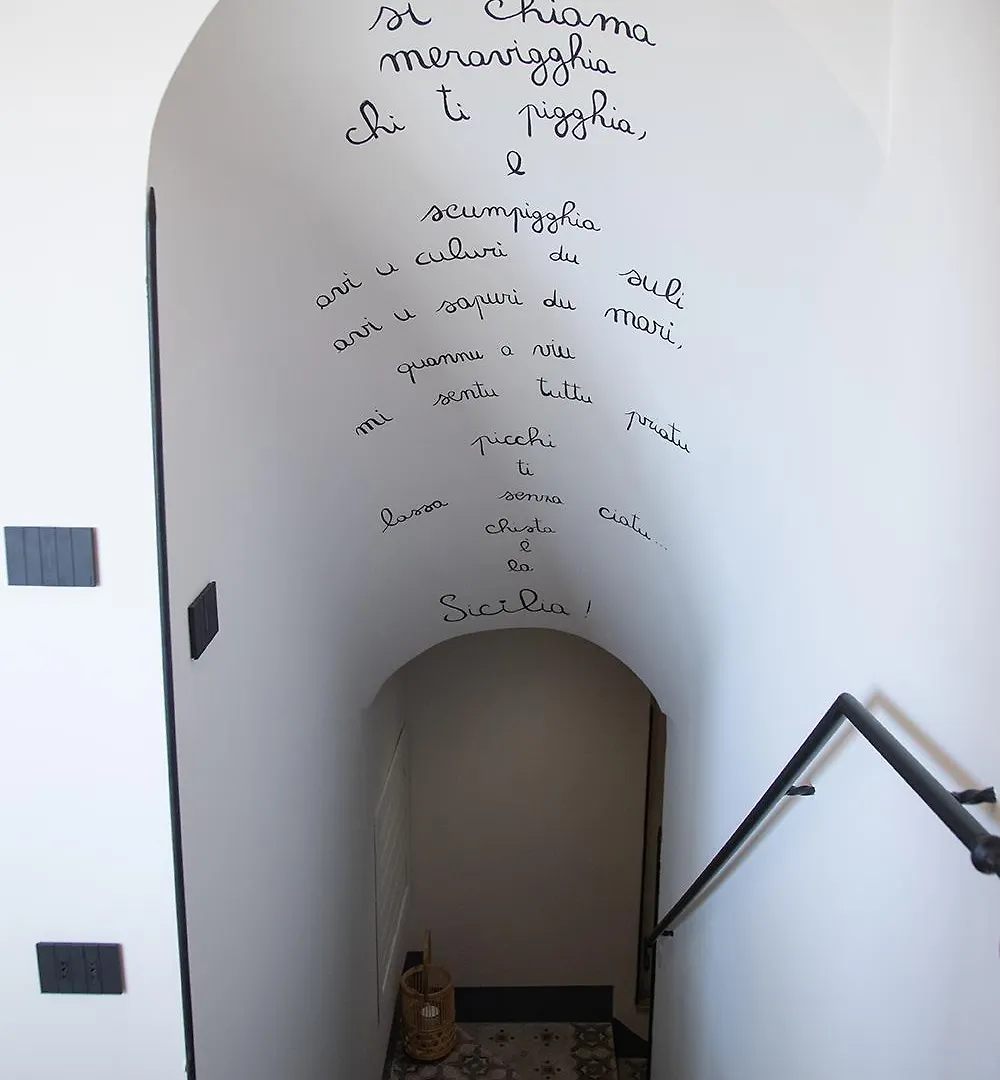 si chiama
meravigghia
chi ti pigghia,
e
scumpigghia
avi u culuri du suli
avi u sapuri du mari,
quannu a viu
mi sentu tuttu priatu
picchi
ti
lassa senza ciatu...
chista
è
la
Sicilia!